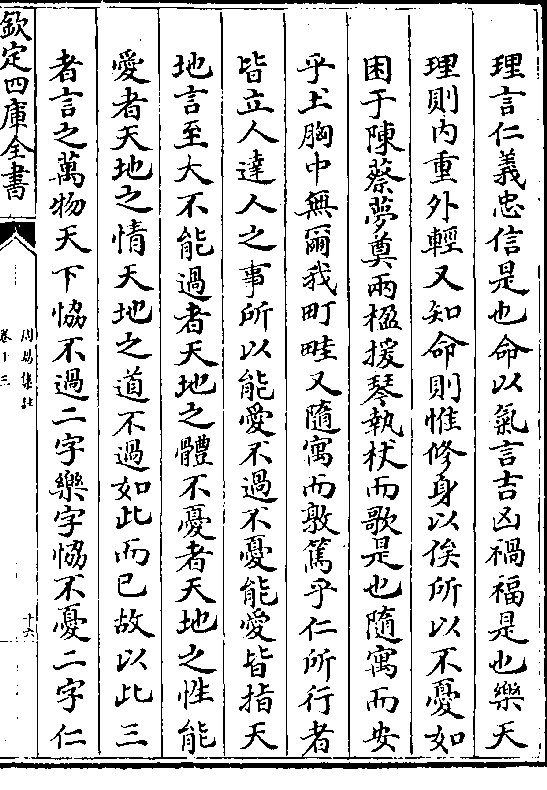 理言仁義忠信是也命以氣言吉凶禍福是也樂天
理則内重外輕又知命則惟修身以俟所以不憂如
困于陳蔡夢奠兩楹援琴執杖而歌是也隨寓而安
乎土胸中無爾我町畦又隨寓而敦篤乎仁所行者
皆立人達人之事所以能愛不過不憂能愛皆指天
地言至大不能過者天地之體不憂者天地之性能
愛者天地之情天地之道不過如此而已故以此三
者言之萬物天下恊不過二字樂字恊不憂二字仁
欽定四庫全書
周易集註
卷十三
十六